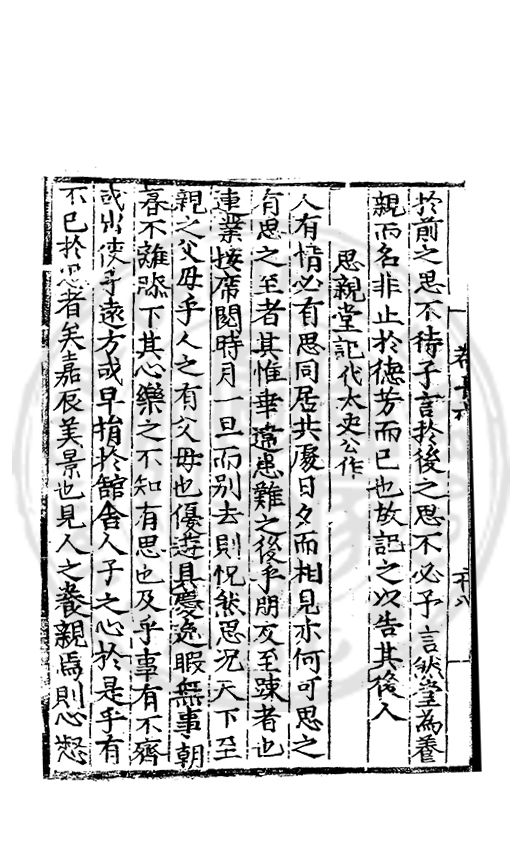 卷十六
十八
於前之思不待予言於後之思不必予言然堂為養
親而名非止於德芳而已也故記之以告其後人
思親堂記代太史公作
人有情必有思同居共處日夕而相見亦何可思之
有思之至者其惟乖違患難之後乎朋友至踈者也
連業接席閱時月一旦而別去則怳然思况天下至
親之父母乎人之有父母也優逰具慶逸暇無事朝
暮不離膝下其心樂之不知有思也及乎事有不齊
或出使乎遠方或早捐於舘舍人子之心於是乎有
不已於思者矣嘉辰美景也見人之養親焉則心愁